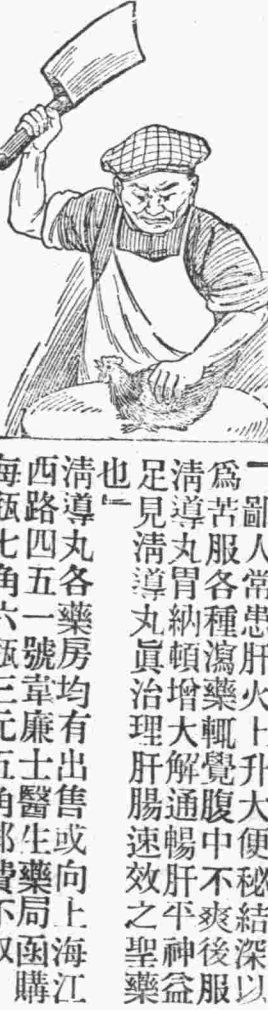 「鄙人常患肝火上升大便秘結深以
爲苦服各種瀉藥輒覺腹中不爽後服
淸導丸胃納頓增大解通暢肝平神益
足見淸導丸眞治理肝腸速效之聖藥
也」
淸導丸各藥房均有出售或向上海江
西路四五一號韋廉士醫生藥局函購
每瓶七角六瓶三元五角郵費不取